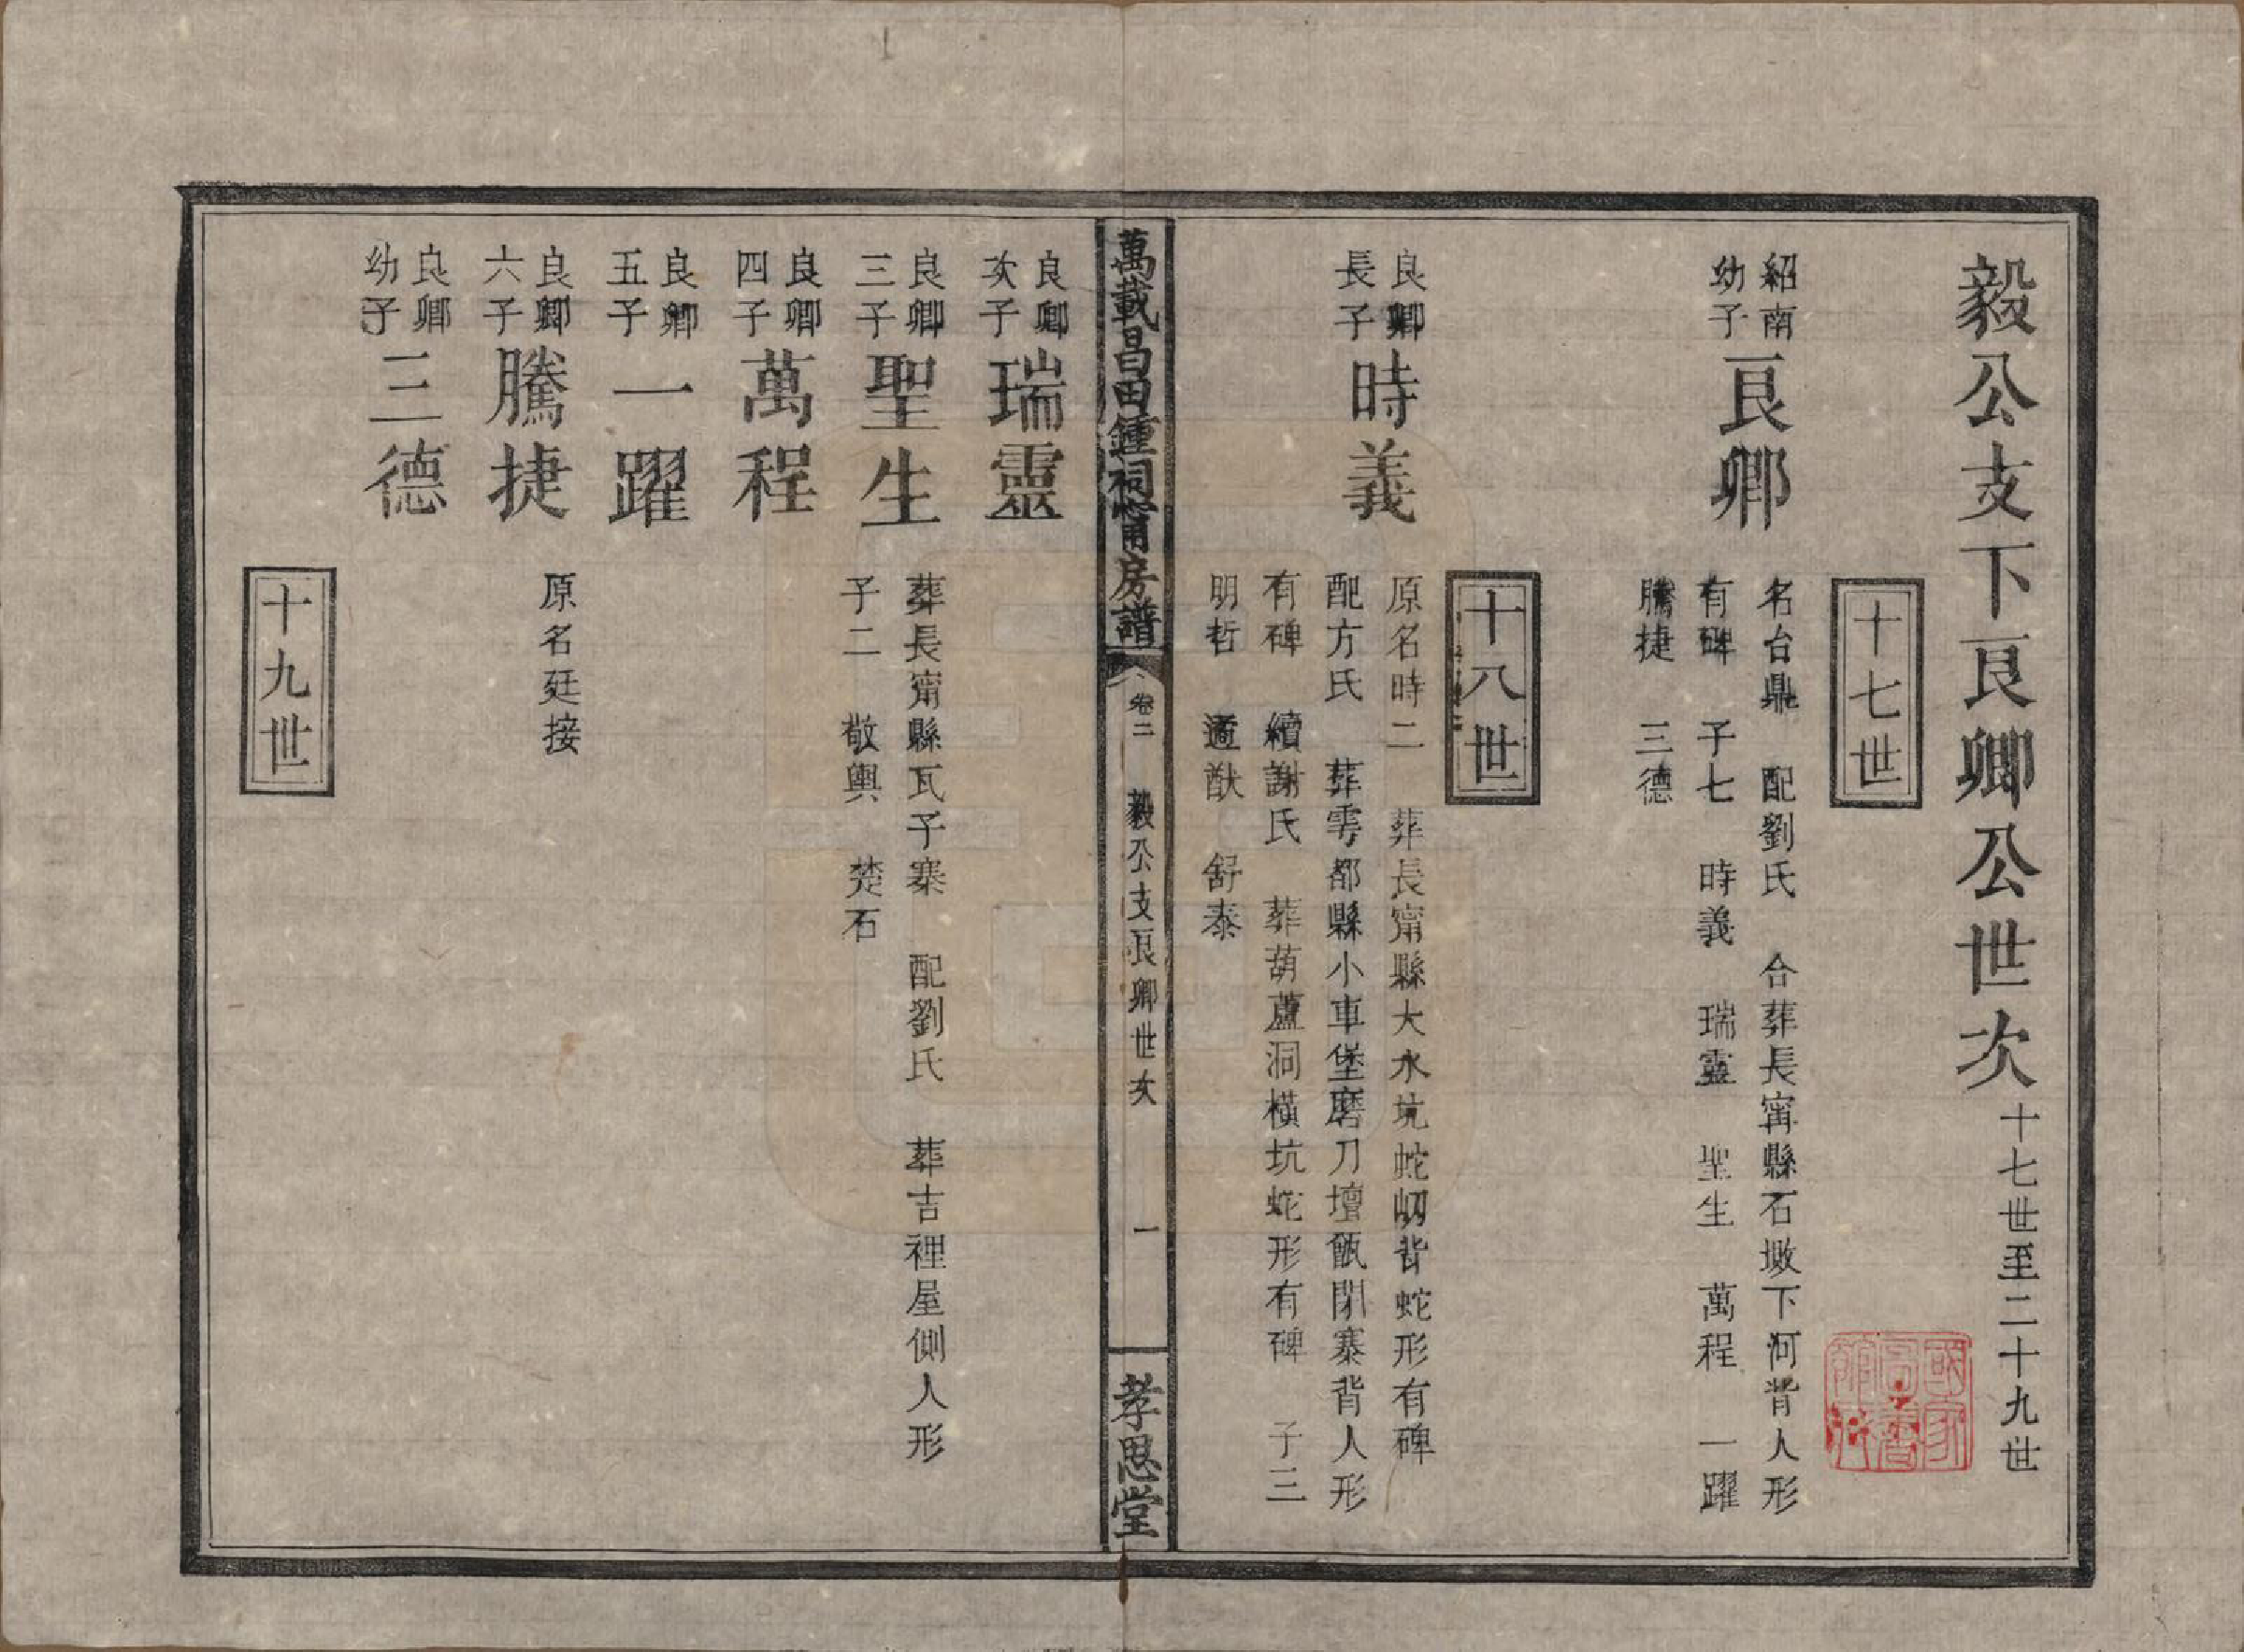 毅公支下良卿公世次十七世至二十九世
十七世
紹南
幼子
良卿
名台鼎　配劉氏　合葬長甯縣石墩下河背人形
有碑　子七　時義　瑞靈　聖生　萬程　一躍
騰捷　三德
十八世
良卿
長子
時義
原名時二　葬長甯縣大水坑蛇㘭背蛇形有碑
配方氏　葬雩都縣小車堡磨刀壇甑閉寨背人形
有碑　續謝氏　葬葫蘆洞橫坑蛇形有碑　子三
明哲　遹猷　舒泰
萬載昌田鍾祠甯房譜
卷二　毅公支良卿世次　一
孝思堂
良卿
次子
瑞靈
良卿
三子
聖生
葬長甯縣瓦子寨　配劉氏　葬吉裡屋側人形
子二　敬輿　楚石
良卿
四子
萬程
良卿
五子
一躍
良卿
六子
騰捷
原名廷接
良卿
幼子
三德
十九世
國家
圖書
館藏